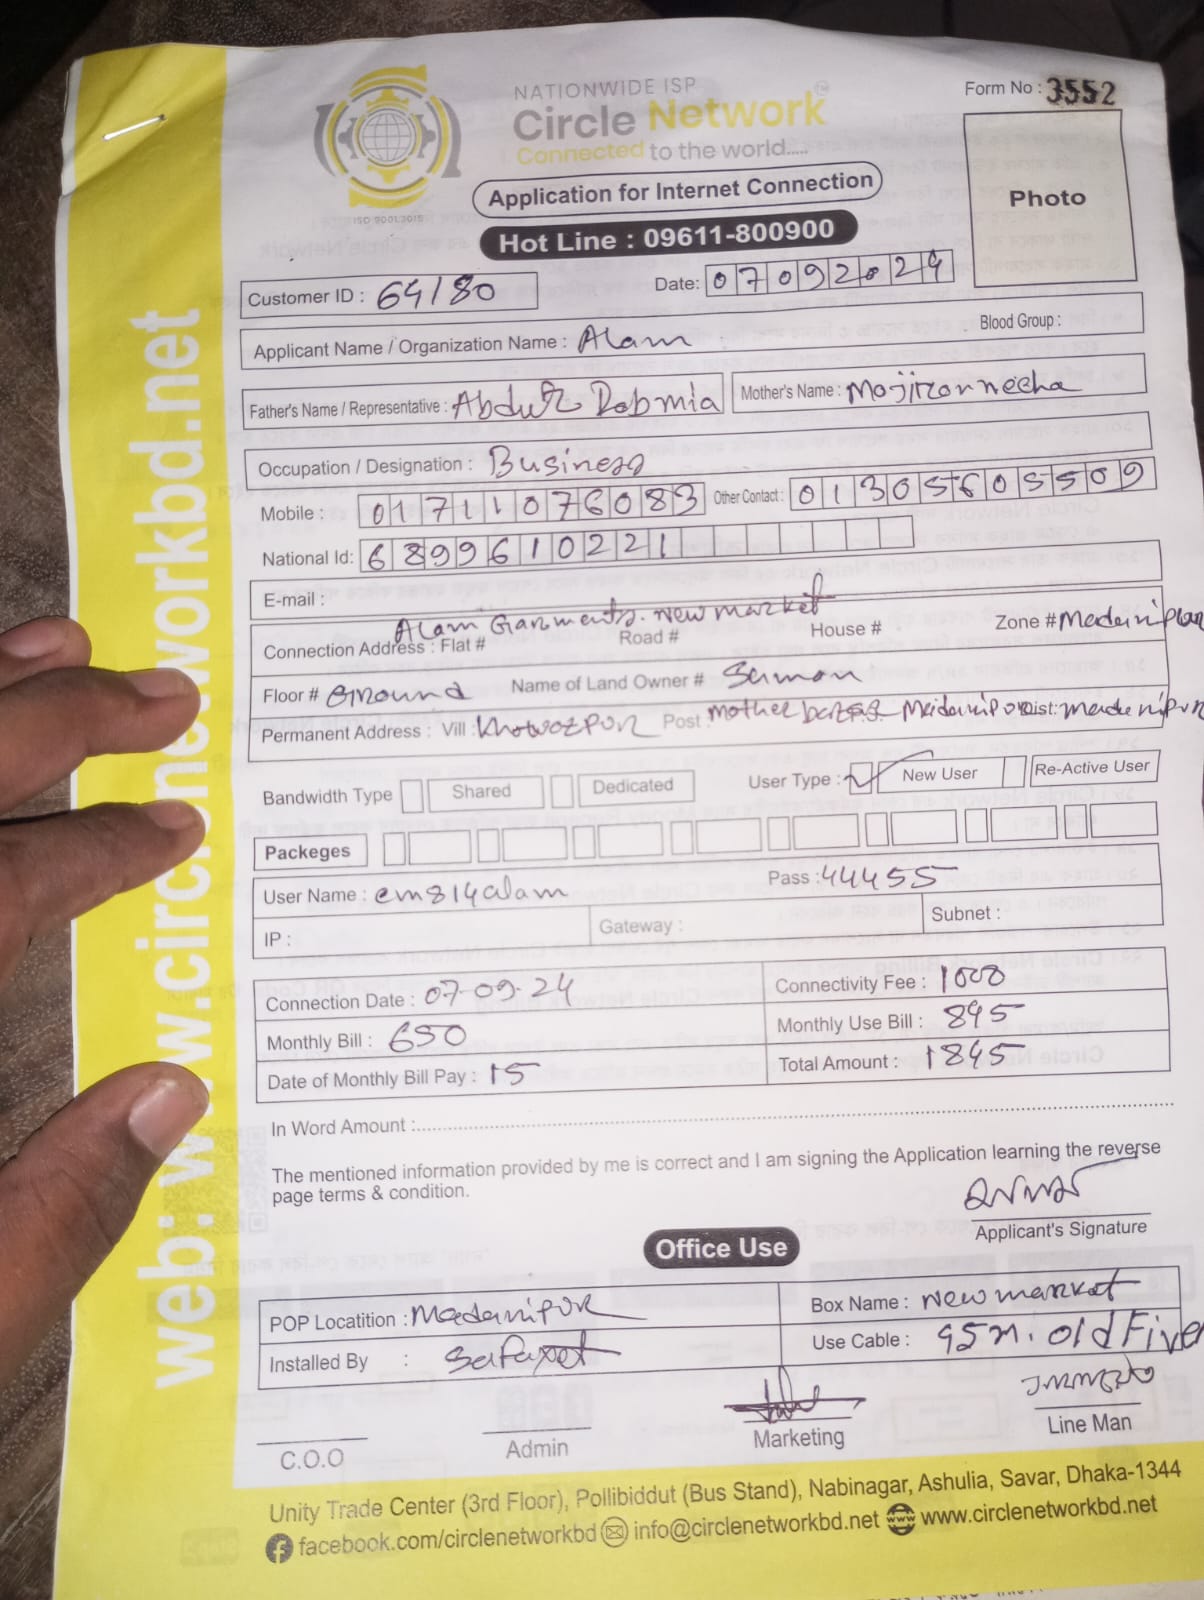 NATIONWIDE ISP
Circle Network
Connected to the world.....
ISO 9001:2015
Form No : 3552
Photo
Application for Internet Connection
Hot Line : 09611-800900
Customer ID : 64180 Date: 07092024
Applicant Name / Organization Name : Alam Blood Group :
Father's Name / Representative : Abdur Mother's Name :
Occupation / Designation : Business
Mobile : 01711076083 Other Contact : 01305605509
National Id: 6899610221
E-mail :
Alam Garments. New market
Connection Address : Flat # Road # House # Zone #
Floor # Ground Name of Land Owner # Sumon
Permanent Address : Vill : Post : Dist:
Bandwidth Type Shared Dedicated User Type : New User Re-Active User
Packeges
User Name : cm814alam Pass : 44455
IP : Gateway : Subnet :
Connection Date : 07-09-24 Connectivity Fee : 1000
Monthly Bill : 650 Monthly Use Bill : 895
Date of Monthly Bill Pay : 15 Total Amount : 1895
In Word Amount :
The mentioned information provided by me is correct and I am signing the Application learning the reverse
page terms & condition.
Applicant's Signature
Office Use
POP Locatition : Madaripur Box Name : New market
Installed By : Use Cable : 95m. old
C.O.O Admin Marketing Line Man
Unity Trade Center (3rd Floor), Pollibiddut (Bus Stand), Nabinagar, Ashulia, Savar, Dhaka-1344
facebook.com/circlenetworkbd info@circlenetworkbd.net www.circlenetworkbd.net
web: www.circlenetworkbd.net